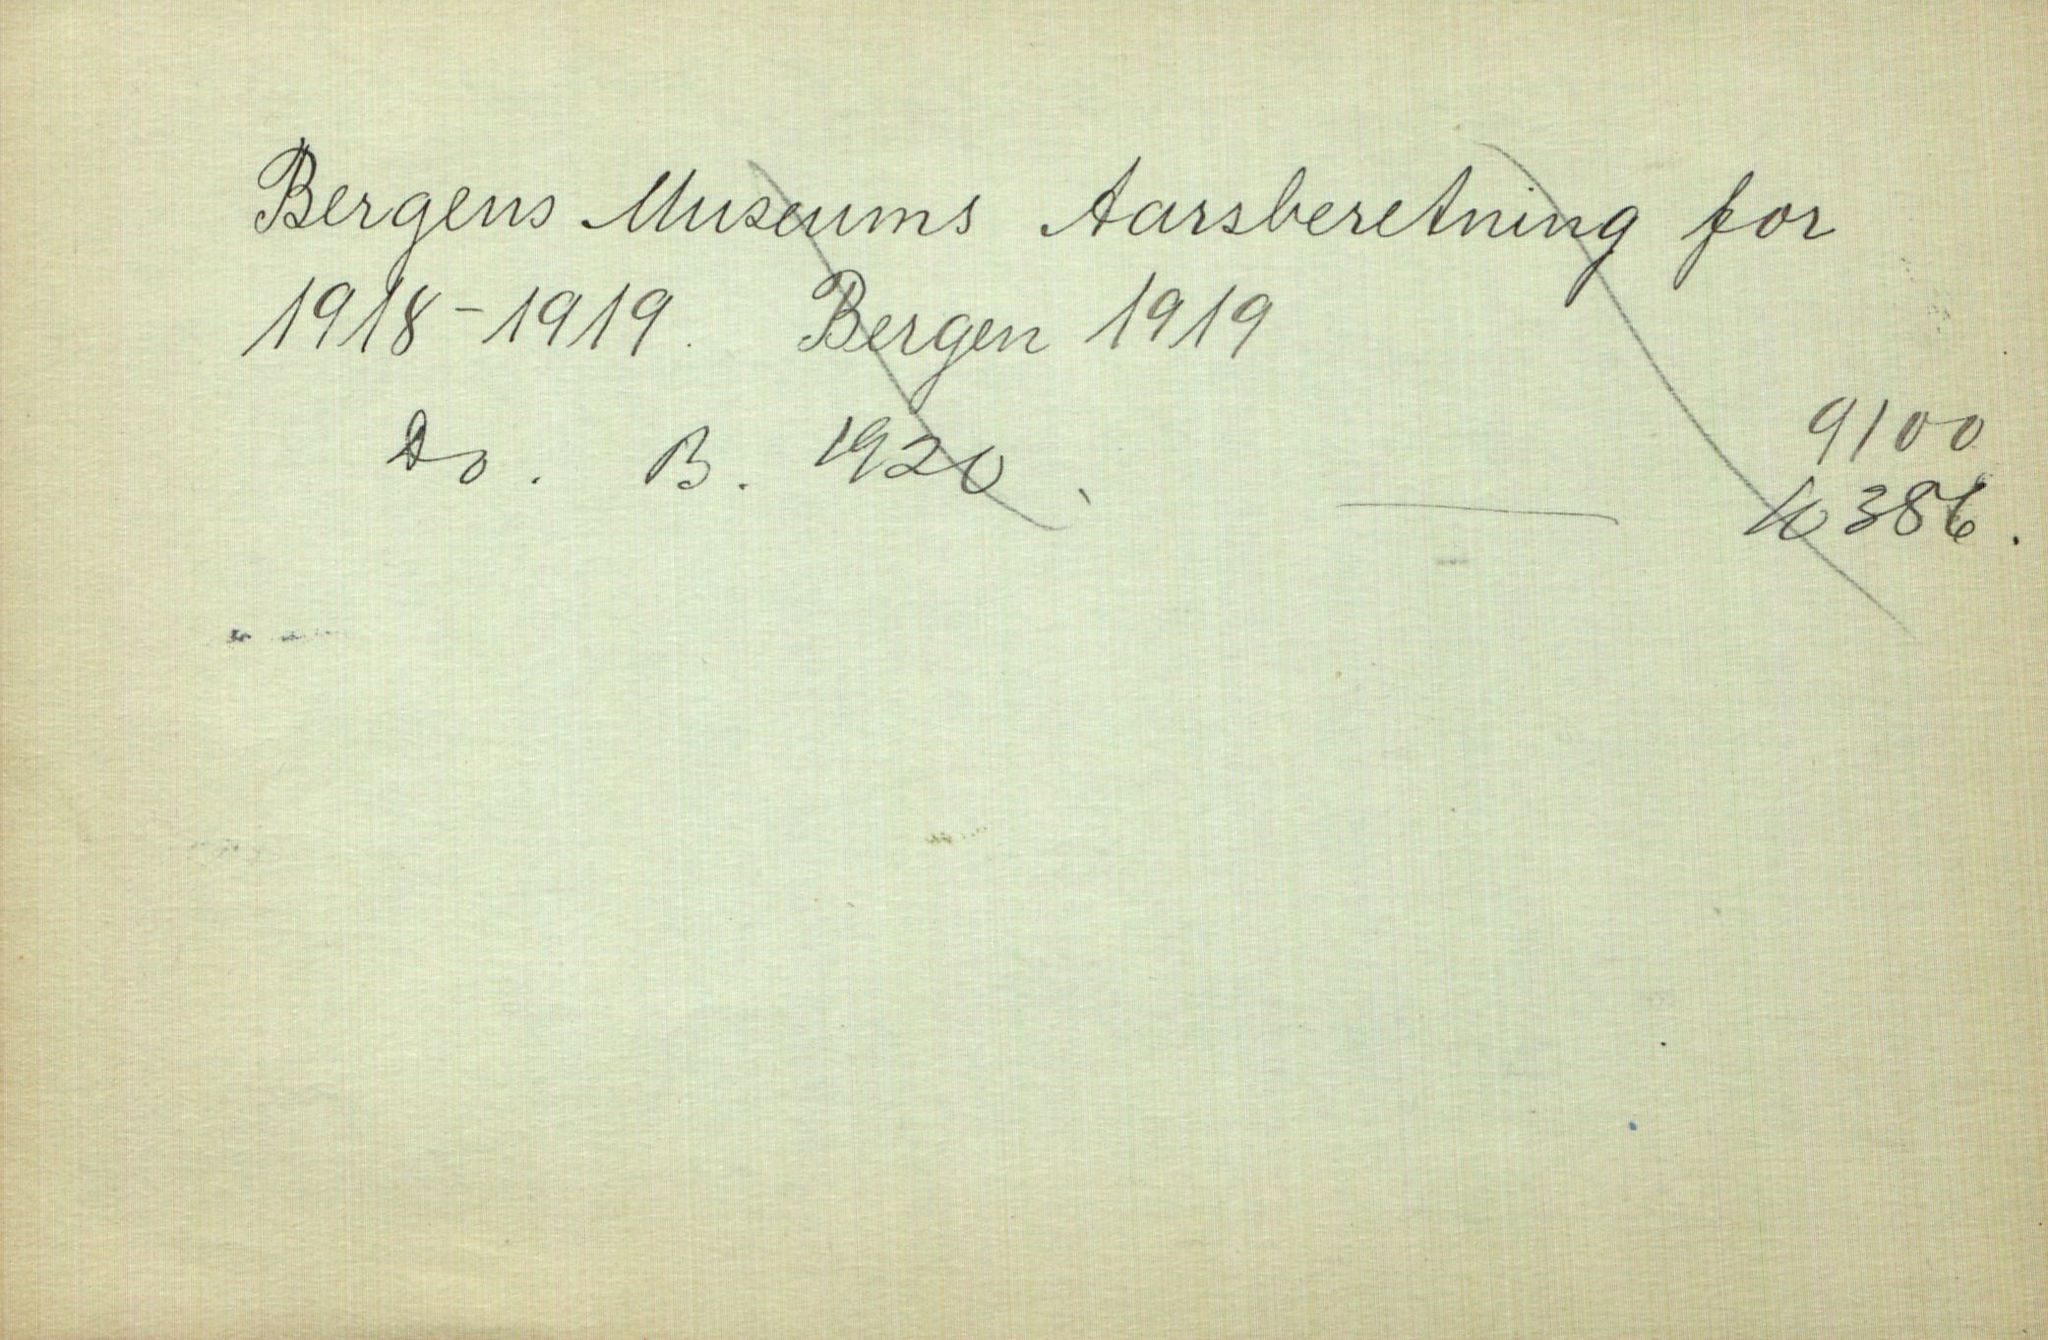 Bergens Museums Aarsberetning for
1918-1919. Bergen 1919
9100
Do. B. 1920. — 10386.